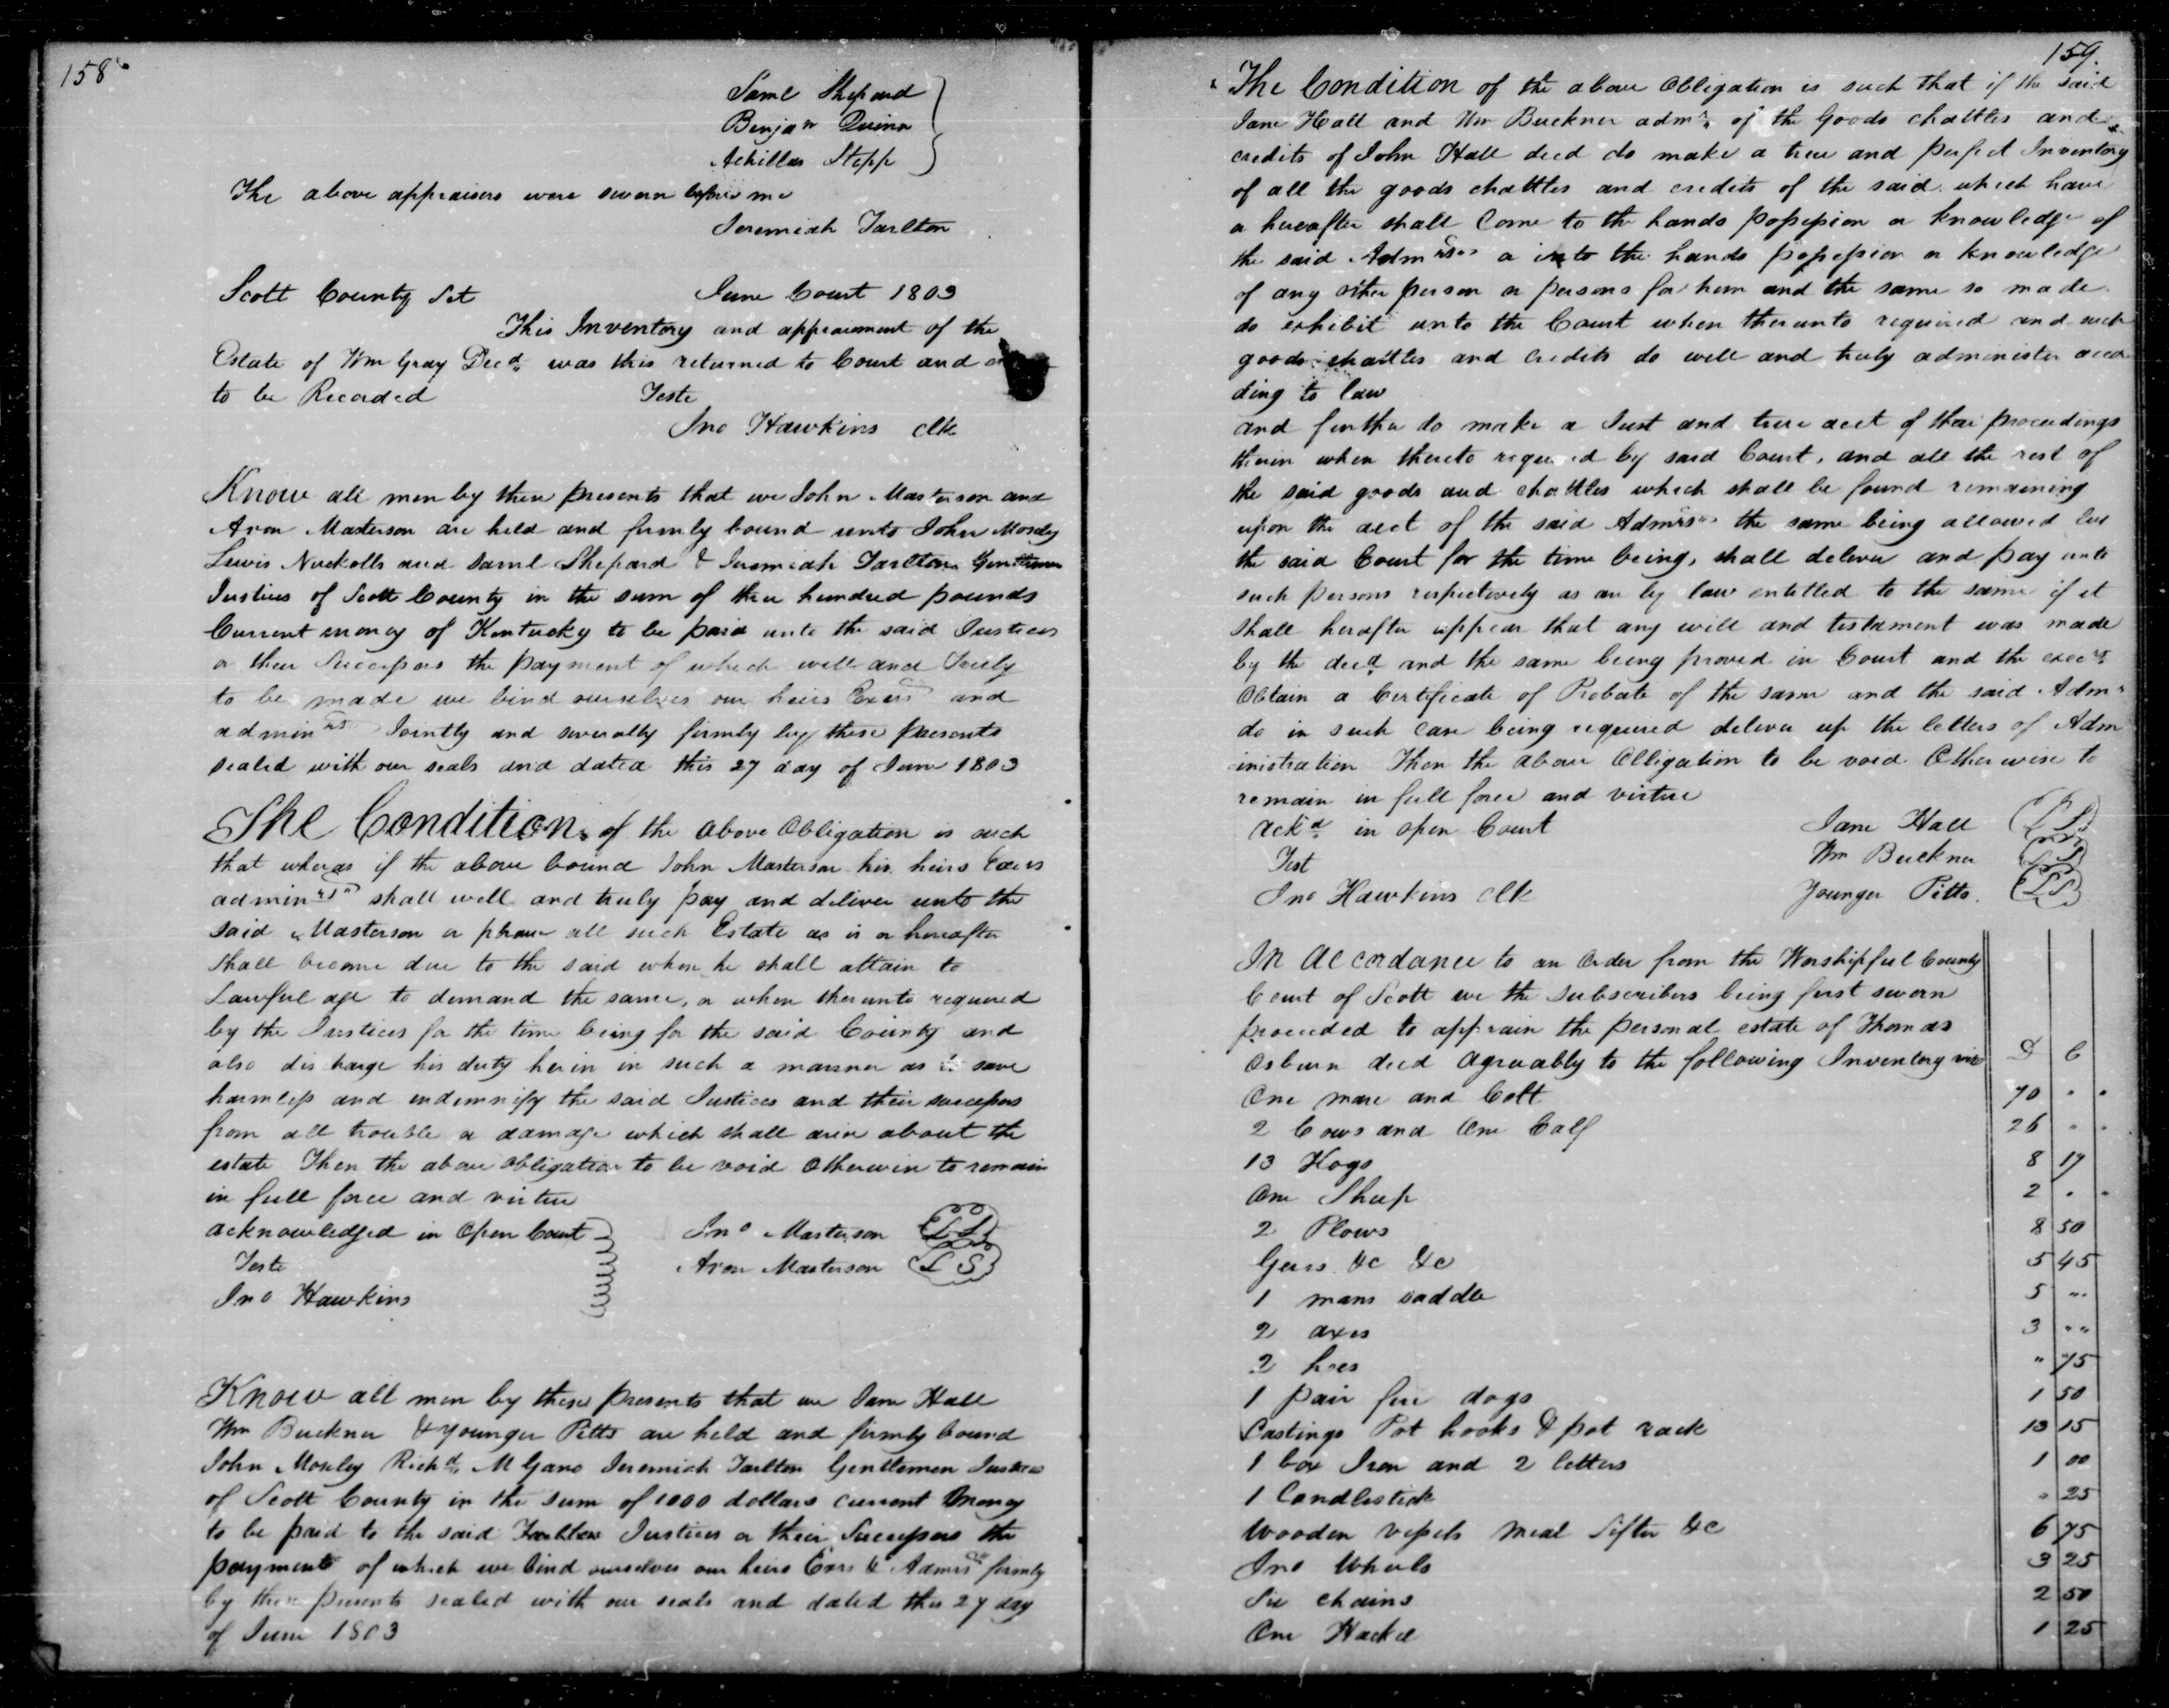 158
Saml Shepard
Benjan Quinn
Achilles Stepp
The above appraisers were sworn before me
Jeremiah Tarlton
Scott County Sct June Court 1803
This Inventory and appraisment of the
Estate of Wm Gray Decd was this returned to Court and
to be Recorded Teste
Jno Hawkins clk
Know all men by these presents that we John Masterson and
Aron Masterson are held and firmly bound unto John Mosley
Lewis Nuckolls and Saml Shepard & Jeremiah Tarlton Gentlemen
Justices of Scott County in the sum of three hundred pounds
Current money of Kentucky to be paid unto the said Justices
or their Successors the payment of which well and Truly
to be made we bind ourselves our heirs Exers and
adminrs Jointly and severally firmly by these presents
sealed with our seals and dated this 27 day of June 1803
The Condition of the above Obligation is such
that wheras if the above bound John Masterson his heirs Exers
adminrs shall well and truly pay and deliver unto the
said Masterson or all such Estate as is or hereafter
shall become due to the said when he shall attain to
Lawful age to demand the same, or when therunto required
by the Justices for the time being for the said County and
also discharge his duty herein in such a manner as to save
harmless and indemnify the said Justices and their successors
from all trouble or damage which shall arise about the
estate Then the above obligation to be void otherwise to remain
in full force and virtue
acknowledged in Open Court Jno Masterson LS
Teste Aron Masterson LS
Jno Hawkins
Know all men by these presents that we Jane Hall
Wm Buckner & Younger Pitts are held and firmly bound
John Mosley Richd M Gano Jeremiah Tarlton Gentlemen Justices
of Scott County in the sum of 1000 dollars current money
to be paid to the said Justices or their Successors the
payment of which we bind ourselves our heirs Exrs & Admrs firmly
by these presents sealed with our seals and dated this 27 day
of June 1803
159.
The Condition of the above Obligation is such that if the said
Jane Hall and Wm Buckner admrs of the Goods chattles and
credits of John Hall decd do make a true and perfect Inventory
of all the goods chattles and credits of the said which have
or hereafter shall Come to the hands possession or knowledge of
the said Admrs or into the hands possession or knowledge
of any other person or persons for him and the same so made
do exhibit unto the Court when therunto required and such
goods chattles and credits do well and truly administer accor
ding to law
and further do make a Just and true acct of their proceedings
therein when thereto required by said Court, and all the rest of
the said goods and chattles which shall be found remaining
upon the acct of the said Admrs the same being allowed by
the said Court for the time being, shall deliver and pay unto
such persons respectively as are by law entitled to the same if it
shall herafter appear that any will and testament was made
by the decd and the same being proved in Court and the exectr
Obtain a Certificate of Probate of the same and the said Admr
do in such case being required deliver up the letters of Adm
inistration Then the above Obligation to be void Otherwise to
remain in full force and virtue
Ackd in open Court Jane Hall LS
Test Wm Buckner LS
Jno Hawkins Clk Younger Pitts. LS
In Accordance to an Order from the Worshipful County
Court of Scott we the Subscribers being first sworn
proceeded to apprain the personal estate of Thomas
Osburn decd agreeably to the following Inventory viz D C
One mare and Colt 70 " "
2 Cows and One Calf 26 " "
13 Hogs 8 17
One Sheep 2 " "
2 Plows 8 50
Geers &c &c 5 45
1 mans saddle 5 ""
2 axes 3 ""
2 hoes " 75
1 pair fire dogs 1 50
Castings Pot hooks & pot rack 13 15
1 box Iron and 2 1 00
1 Candlestick " 25
Wooden vessels meal Sifter &c 6 75
Wheels 3 25
Six chains 2 50
One Hackel 1 25